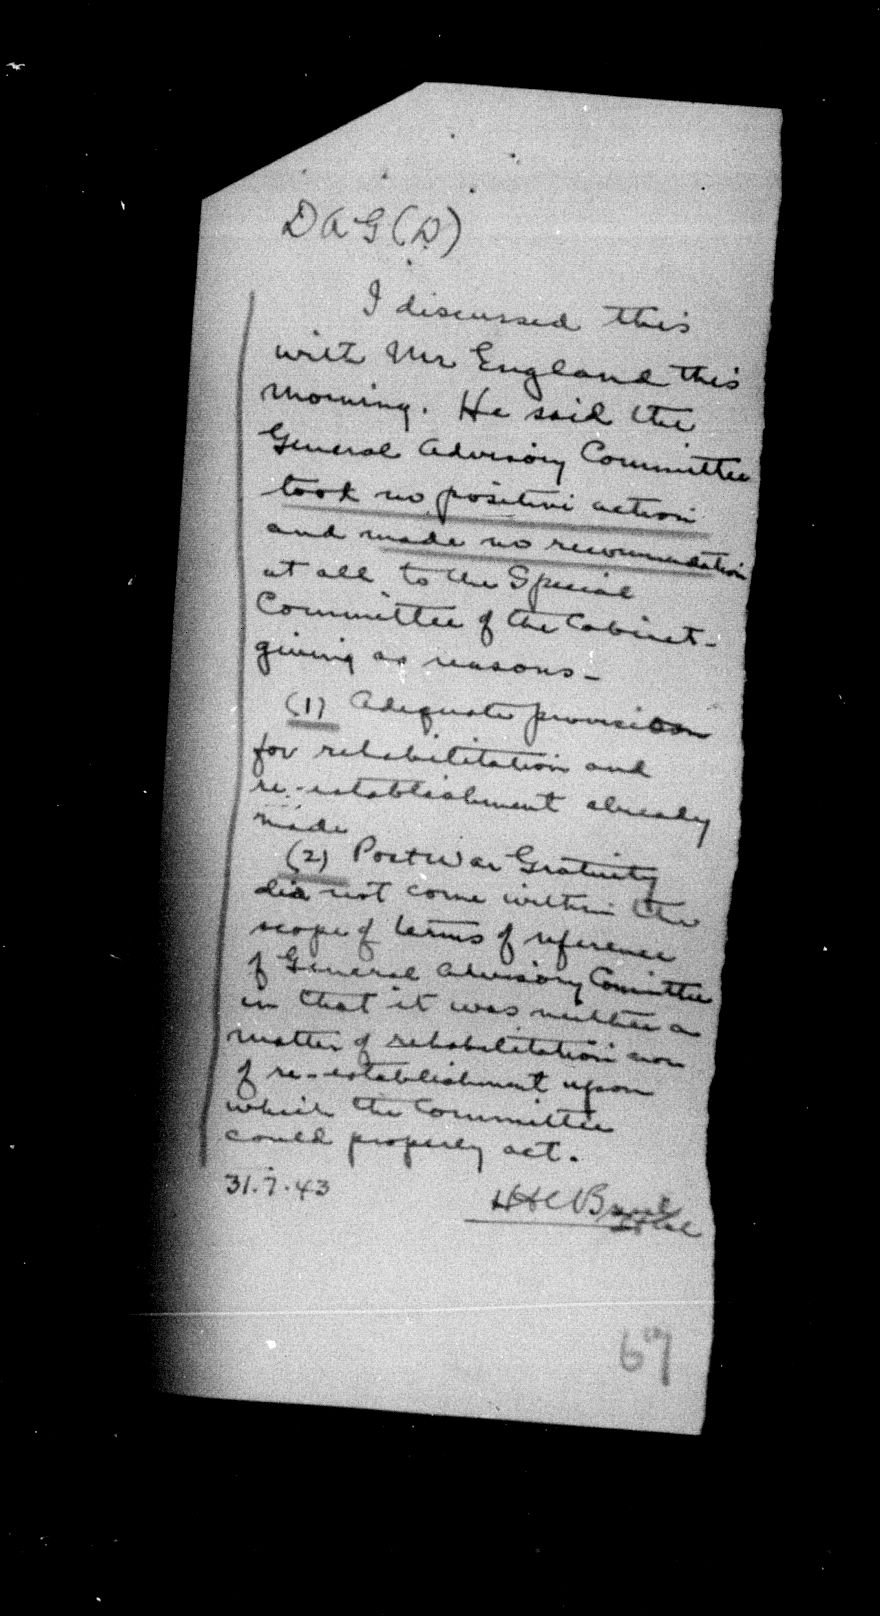 DAG(D)
I discussed this
with Mr England this
morning. He said the
General Advisory Committee
took no positive action
and made no recommendation
at all to the Special
Committee of the Cabinet -
giving as reasons -
(1) Adequate provision
for rehabilitation and
re-establishment already
made
(2) Post War Gratuity
did not come within the
scope of terms of reference
of General Advisory Committee
in that it was neither a
matter of rehabilitation nor
of re-establishment upon
which the Committee
could properly act.
31.7.43
67